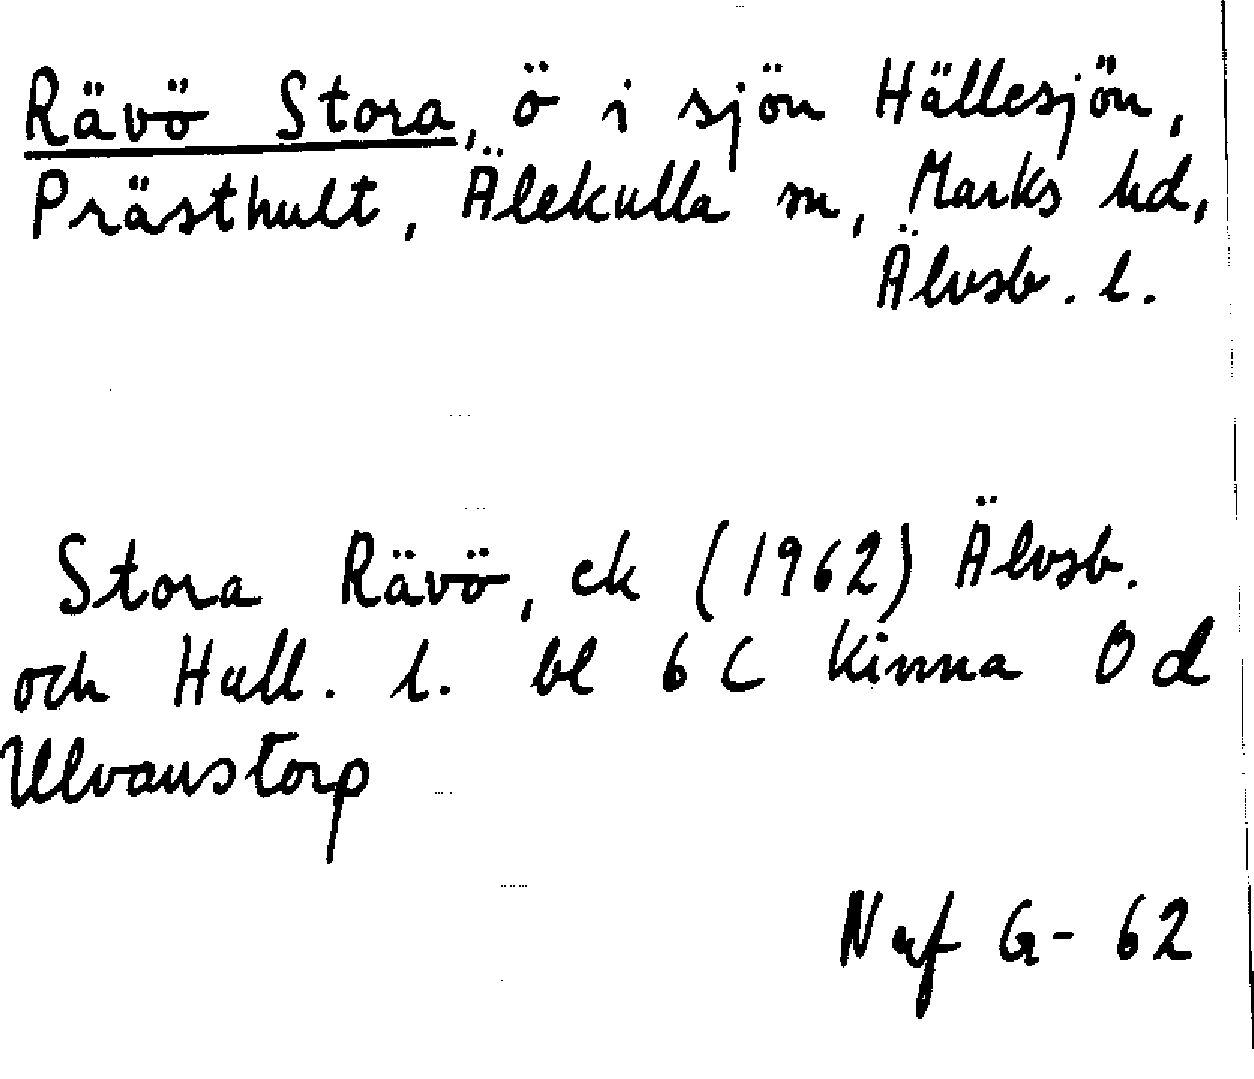 Rävö Stora, ö i sjön Hällesjön,
Prästhult, Älekulla sn, Marks hd,
Älvsb. l.
Stora Rävö, ek (1962) Älvsb.
och Hall. l. bl 6 C Kinna 0 d
Ulvanstorp
Naf G- 62